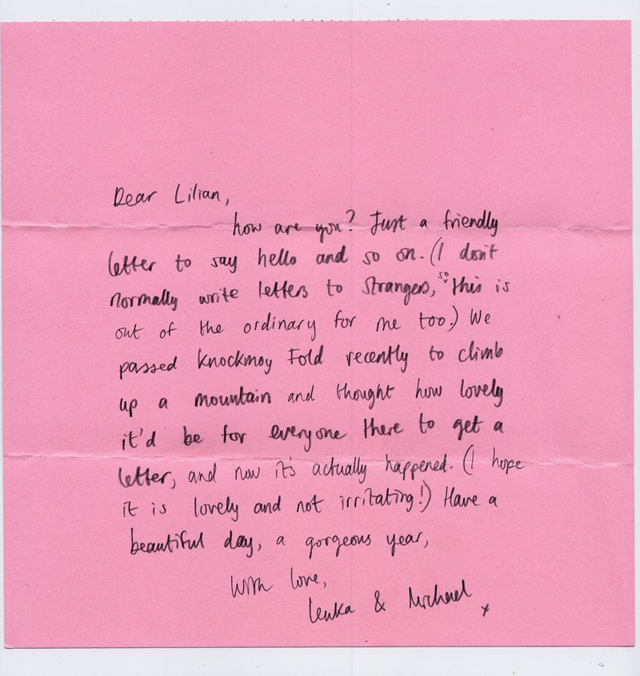 Dear Lilian,
how are you? Just a friendly
letter to say hello and so on. (I don't
normally write letters to strangers, so this is
out of the ordinary for me too.) We
passed Knockmoy Fold recently to climb
up a mountain and thought how lovely
it'd be for everyone there to get a
letter, and now it's actually happened. (I hope
it is lovely and not irritating!) Have a
beautiful day, a gorgeous year,
With love,
Lenka & Michael x